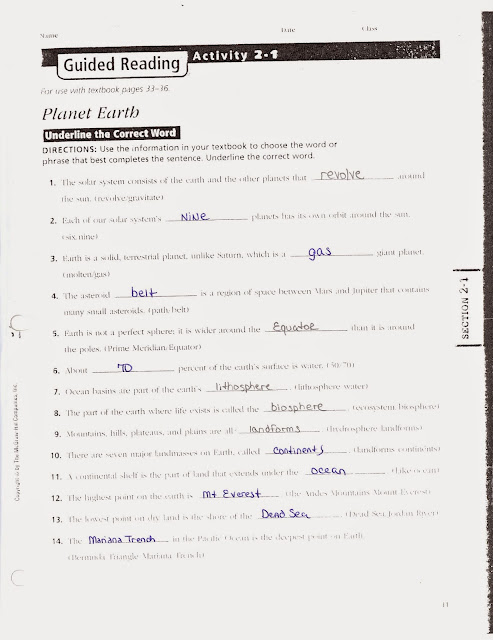 Name Date Class
Guided Reading Activity 2-1
For use with textbook pages 33–36.
Planet Earth
Underline the Correct Word
DIRECTIONS: Use the information in your textbook to choose the word or
phrase that best completes the sentence. Underline the correct word.
1. The solar system consists of the earth and the other planets that revolve around
the sun. (revolve/gravitate)
2. Each of our solar system's NINE planets has its own orbit around the sun.
(six/nine)
3. Earth is a solid, terrestrial planet, unlike Saturn, which is a gas giant planet.
(molten/gas)
4. The asteroid belt is a region of space between Mars and Jupiter that contains
many small asteroids. (path/belt)
5. Earth is not a perfect sphere; it is wider around the Equatoe than it is around
the poles. (Prime Meridian/Equator)
6. About 70 percent of the earth's surface is water. (50/70)
7. Ocean basins are part of the earth's lithosphere. (lithosphere/water)
8. The part of the earth where life exists is called the biosphere. (ecosystem/biosphere)
9. Mountains, hills, plateaus, and plains are all landforms. (hydrosphere/landforms)
10. There are seven major landmasses on Earth, called continents. (landforms/continents)
11. A continental shelf is the part of land that extends under the ocean. (lake/ocean)
12. The highest point on the earth is Mt Everest. (the Andes Mountains/Mount Everest)
13. The lowest point on dry land is the shore of the Dead Sea. (Dead Sea/Jordan River)
14. The Mariana Trench in the Pacific Ocean is the deepest point on Earth.
(Bermuda Triangle/Mariana Trench)
SECTION 2-1
Copyright © by The McGraw-Hill Companies, Inc.
11